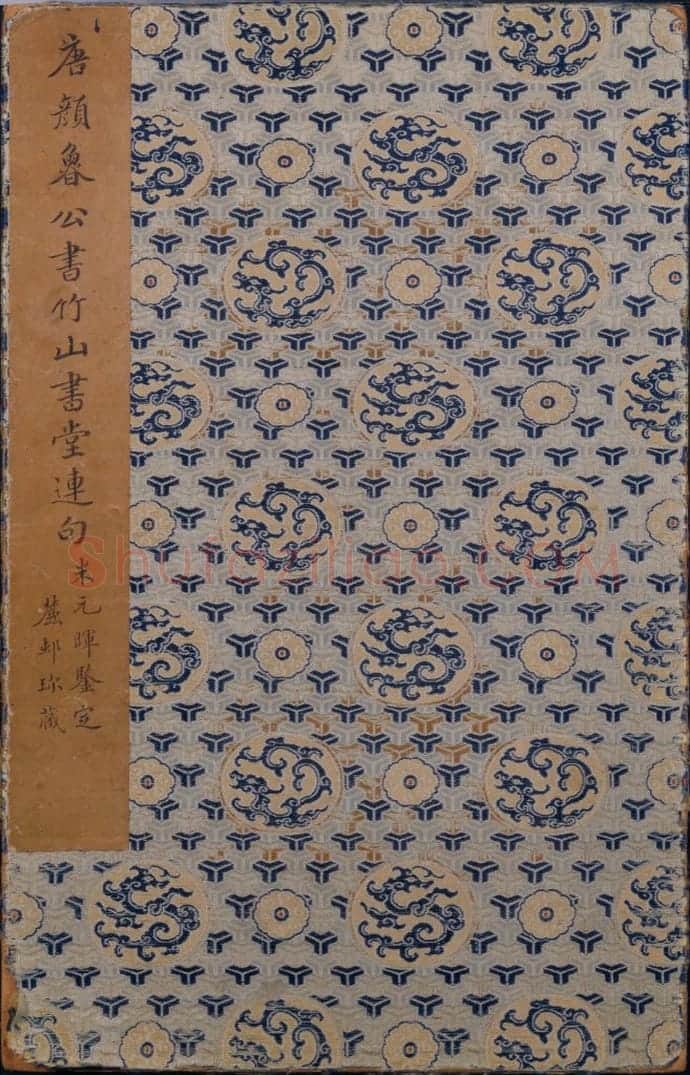 唐顔魯公書竹山書堂連句
米元暉鑒定
蕉邨珎藏
shufaziliao.COM